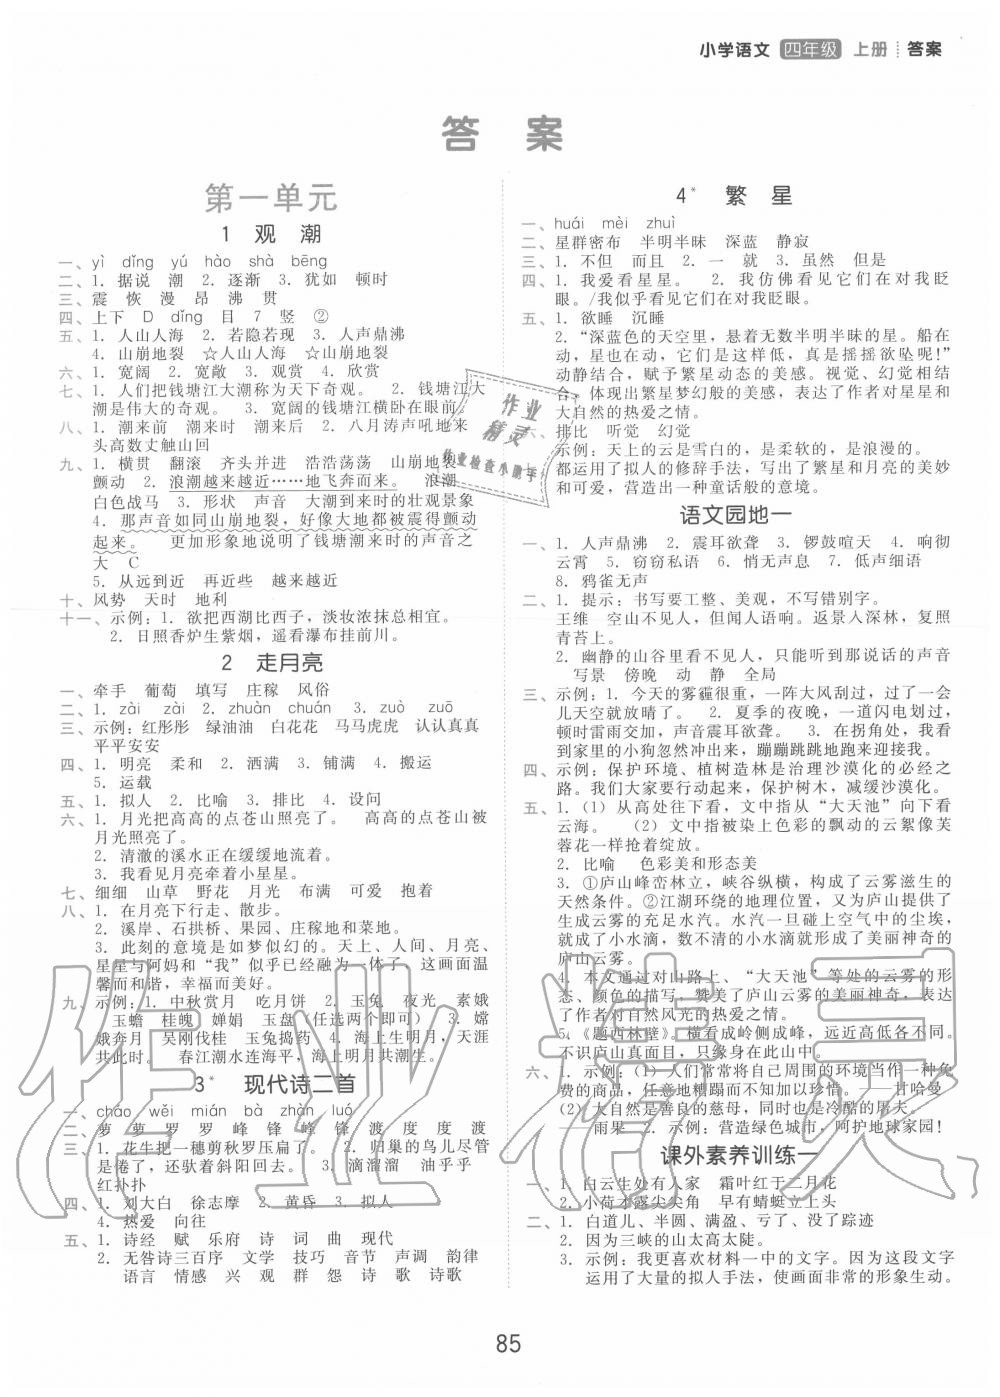 小学语文 四年级 上册 答案
答 案
第一单元
1 观 潮
一、yì dǐng yú hào shà bēng
二、1. 据说 潮 2. 逐渐 3. 犹如 顿时
三、震 恢 漫 昂 沸 贯
四、上下 D dǐng 目 7 竖 ②
五、1. 人山人海 2. 若隐若现 3. 人声鼎沸
4. 山崩地裂 ☆人山人海 ☆山崩地裂
六、1. 宽阔 2. 宽敞 3. 观赏 4. 欣赏
七、1. 人们把钱塘江大潮称为天下奇观。 2. 钱塘江大
潮是伟大的奇观。 3. 宽阔的钱塘江横卧在眼前。
八、1. 潮来前 潮来时 潮来后 2. 八月涛声吼地来
头高数丈触山回
九、1. 横贯 翻滚 齐头并进 浩浩荡荡 山崩地裂
颤动 2. 浪潮越来越近……地飞奔而来。 浪潮
白色战马 3. 形状 声音 大潮到来时的壮观景象
4. 那声音如同山崩地裂,好像大地都被震得颤动
起来。 更加形象地说明了钱塘潮来时的声音之
大 C
5. 从远到近 再近些 越来越近
十、风势 天时 地利
十一、示例:1. 欲把西湖比西子,淡妆浓抹总相宜。
2. 日照香炉生紫烟,遥看瀑布挂前川。
2 走月亮
一、牵手 葡萄 填写 庄稼 风俗
二、1. zāi zài 2. zhuàn chuán 3. zuò zuō
三、示例:红彤彤 绿油油 白花花 马马虎虎 认认真真
平平安安
四、1. 明亮 柔和 2. 洒满 3. 铺满 4. 搬运
5. 运载
五、1. 拟人 2. 比喻 3. 排比 4. 设问
六、1. 月光把高高的点苍山照亮了。 高高的点苍山被
月光照亮了。
2. 清澈的溪水正在缓缓地流着。
3. 我看见月亮牵着小星星。
七、细细 山草 野花 月光 布满 可爱 抱着
八、1. 在月亮下行走、散步。
2. 溪岸、石拱桥、果园、庄稼地和菜地。
3. 此刻的意境是如梦似幻的。天上、人间、月亮、
星星与阿妈和“我”似乎已经融为一体了,这画面温
馨而和谐,幸福而美好。
九、示例:1. 中秋赏月 吃月饼 2. 玉兔 夜光 素娥
玉蟾 桂魄 婵娟 玉盘(任选两个即可) 3. 嫦
娥奔月 吴刚伐桂 玉兔捣药 4. 海上生明月,天涯
共此时。 春江潮水连海平,海上明月共潮生。
3* 现代诗二首
一、cháo wěi mián bà zhàn luó
二、萝 萝 罗 罗 峰 锋 峰 锋 渡 度 度 渡
三、1. 花牛把一穗剪秋罗压扁了。 2. 归巢的鸟儿尽管
是倦了,还驮着斜阳回去。 3. 滴溜溜 油乎乎
红扑扑
四、1. 刘大白 徐志摩 2. 黄昏 3. 拟人
4. 热爱 向往
五、1. 诗经 赋 乐府 诗 词 曲 现代
2. 无咎诗三百序 文学 技巧 音节 声调 韵律
语言 情感 兴 观 群 怨 诗 歌 诗歌
4* 繁 星
一、huái mèi zhuì
二、星群密布 半明半昧 深蓝 静寂
三、1. 不但 而且 2. 一 就 3. 虽然 但是
四、1. 我爱看星星。 2. 我仿佛看见它们在对我眨
眼。/我似乎看见它们在对我眨眼。
五、1. 欲睡 沉睡
2.“深蓝色的天空里,悬着无数半明半昧的星。船在
动,星也在动,它们是这样低,真是摇摇欲坠呢!”
动静结合,赋予繁星动态的美感。视觉、幻觉相结
合,体现出繁星梦幻般的美感,表达了作者对星星和
大自然的热爱之情。
六、排比 听觉 幻觉
七、示例:天上的云是雪白的,是柔软的,是浪漫的。
都运用了拟人的修辞手法,写出了繁星和月亮的美妙
和可爱,营造出一种童话般的意境。
语文园地一
一、1. 人声鼎沸 2. 震耳欲聋 3. 锣鼓喧天 4. 响彻
云霄 5. 窃窃私语 6. 悄无声息 7. 低声细语
8. 鸦雀无声
二、1. 提示:书写要工整、美观,不写错别字。
王维 空山不见人,但闻人语响。返景入深林,复照
青苔上。
2. 幽静的山谷里看不见人,只能听到那说话的声音
写景 傍晚 动 静 全局
三、示例:1. 今天的雾霾很重,一阵大风刮过,过了一会
儿天空就放晴了。 2. 夏季的夜晚,一道闪电划过,
顿时雷雨交加,声音震耳欲聋。 3. 在拐角处,我看
到家里的小狗忽然冲出来,蹦蹦跳跳地跑来迎接我。
四、示例:保护环境、植树造林是治理沙漠化的必经之
路。我们大家要行动起来,保护树木,减缓沙漠化。
五、1.(1)从高处往下看,文中指从“大天池”向下看
云海。 (2)文中指被染上色彩的飘动的云絮像芙
蓉花一样抢着绽放。
2. 比喻 色彩美和形态美
3. ①庐山峰峦林立,峡谷纵横,构成了云雾滋生的
天然条件。②江湖环绕的地理位置,又为庐山提供了
生成云雾的充足水汽。水汽一旦碰上空气中的尘埃,
就成了小水滴,数不清的小水滴就形成了美丽神奇的
庐山云雾。
4. 本文通过对山路上、“大天池”等处的云雾的形
态、颜色的描写,赞美了庐山云雾的美丽神奇,表达
了作者对自然风光的热爱之情。
5.《题西林壁》。横看成岭侧成峰,远近高低各不同。
不识庐山真面目,只缘身在此山中。
六、1. 示例:(1)人们常常将自己周围的环境当作一种免
费的商品,任意地糟蹋而不知加以珍惜。——甘哈曼
(2)大自然是善良的慈母,同时也是冷酷的屠夫。
——雨果 2. 示例:营造绿色城市,呵护地球家园!
课外素养训练一
一、1. 白云生处有人家 霜叶红于二月花
2. 小荷才露尖尖角 早有蜻蜓立上头
二、1. 白道儿、半圆、满盈、亏了、没了踪迹
2. 因为三峡的山太高太陡。
3. 示例:我更喜欢材料一中的文字。因为这段文字
运用了大量的拟人手法,使画面非常的形象生动。
作业
精灵
作业检查小助手
作业精灵
85